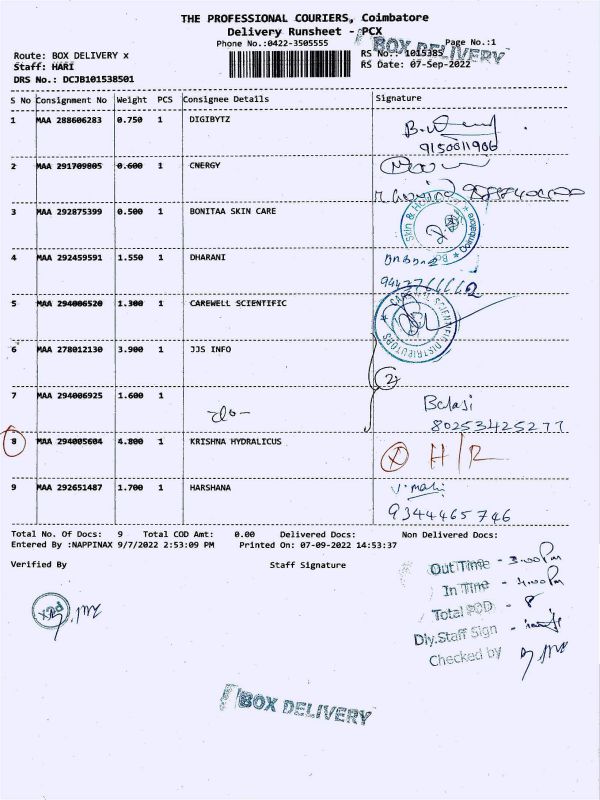 THE PROFESSIONAL COURIERS, Coimbatore
Delivery Runsheet - PCX
Phone No.:0422-3505555
Page No.:1
BOX DELIVERY
Route: BOX DELIVERY x
RS No.: 1015385
Staff: HARI
RS Date: 07-Sep-2022
DRS No.: DCJB101538501
S No Consignment No Weight PCS Consignee Details Signature
1 MAA 288606283 0.750 1 DIGIBYTZ
9150011906
2 MAA 291709805 0.600 1 CNERGY
3 MAA 292875399 0.500 1 BONITAA SKIN CARE
Coimbatore
4 MAA 292459591 1.550 1 DHARANI
5 MAA 294006520 1.300 1 CAREWELL SCIENTIFIC
CAREWELL SCIENTIFIC DISTRIBUTORS
6 MAA 278012130 3.900 1 JJS INFO
2
7 MAA 294006925 1.600 1
-do-
Balaji
80253425277
8 MAA 294005604 4.800 1 KRISHNA HYDRALICUS
X H/R
9 MAA 292651487 1.700 1 HARSHANA
V. mani
9344465746
Total No. Of Docs: 9 Total COD Amt: 0.00 Delivered Docs: Non Delivered Docs:
Entered By :NAPPINAX 9/7/2022 2:53:09 PM Printed On: 07-09-2022 14:53:37
Verified By Staff Signature
Out Time - 3.00 Pm
In Time - 4.00 Pm
Total POD - 8
Dly.Staff Sign -
Checked by
PCX
BOX DELIVERY